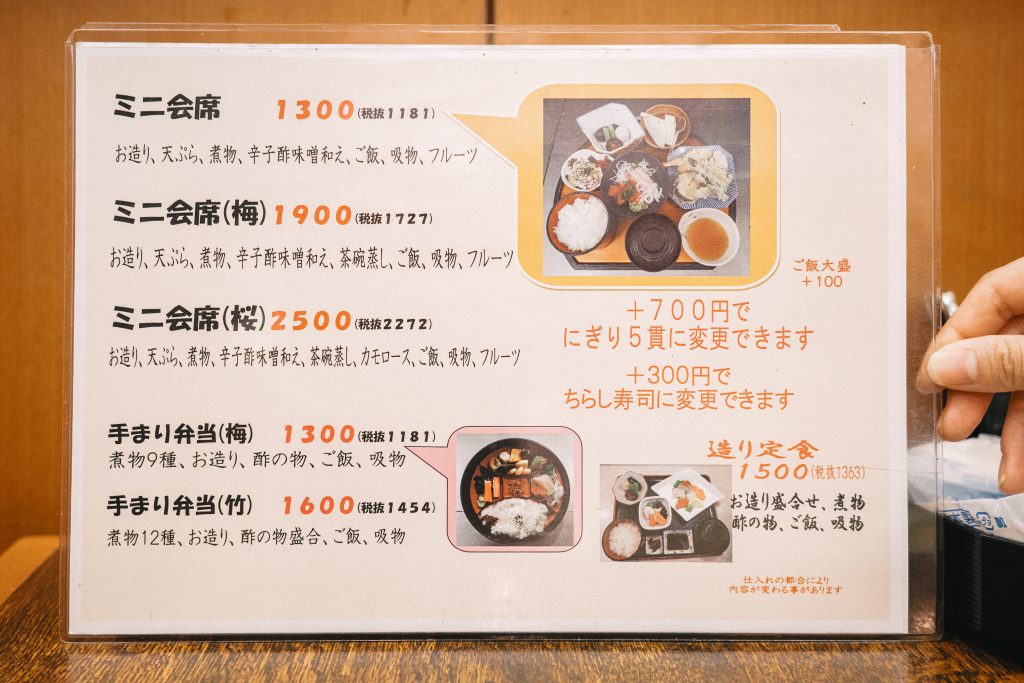 ミニ会席 1300(税抜1181)
お造り、天ぷら、煮物、辛子酢味噌和え、ご飯、吸物、フルーツ
ミニ会席(梅)1900(税抜1727)
お造り、天ぷら、煮物、辛子酢味噌和え、茶碗蒸し、ご飯、吸物、フルーツ
ミニ会席(桜)2500(税抜2272)
お造り、天ぷら、煮物、辛子酢味噌和え、茶碗蒸し、カモロース、ご飯、吸物、フルーツ
ご飯大盛
+100
+700円で
にぎり5貫に変更できます
+300円で
ちらし寿司に変更できます
手まり弁当(梅) 1300(税抜1181)
煮物9種、お造り、酢の物、ご飯、吸物
手まり弁当(竹) 1600(税抜1454)
煮物12種、お造り、酢の物盛合、ご飯、吸物
造り定食
1500(税抜1363)
お造り盛合せ、煮物
酢の物、ご飯、吸物
仕入れの都合により
内容が変わる事があります